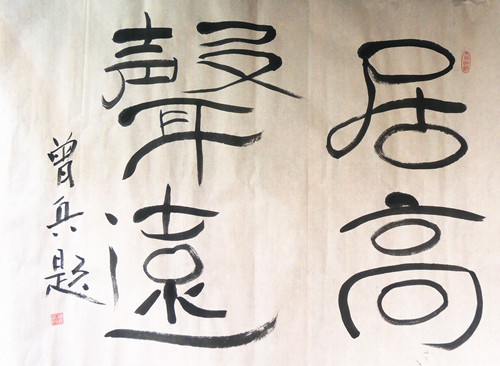 居高
聲遠
曾兵题